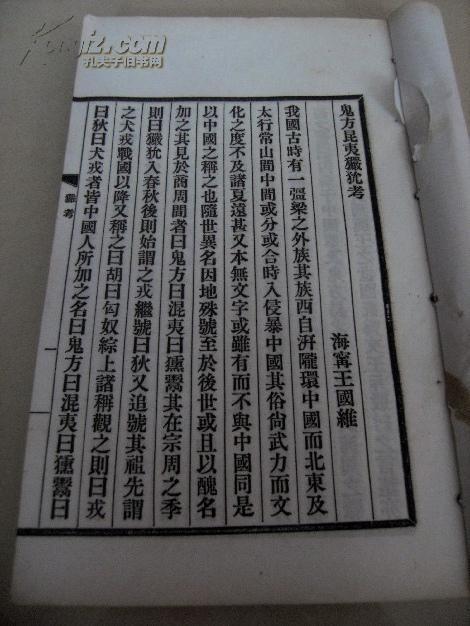 鬼方昆夷玁狁考
海寧王國維
我國古時有一彊梁之外族其族西自汧隴環中國而北東及
太行常山間中間或分或合時入侵暴中國其俗尚武力而文
化之度不及諸夏遠甚又本無文字或雖有而不與中國同是
以中國之稱之也隨世異名因地殊號至於後世或且以醜名
加之其見於商周間者曰鬼方曰混夷曰獯鬻其在宗周之季
則曰玁狁入春秋後則始謂之戎繼號曰狄又追號其祖先謂
之犬戎戰國以降又稱之曰胡曰匈奴綜上諸稱觀之則曰戎
曰狄曰犬戎者皆中國人所加之名曰鬼方曰混夷曰獯鬻曰
玁考
一
Kongfz.com
孔夫子旧书网